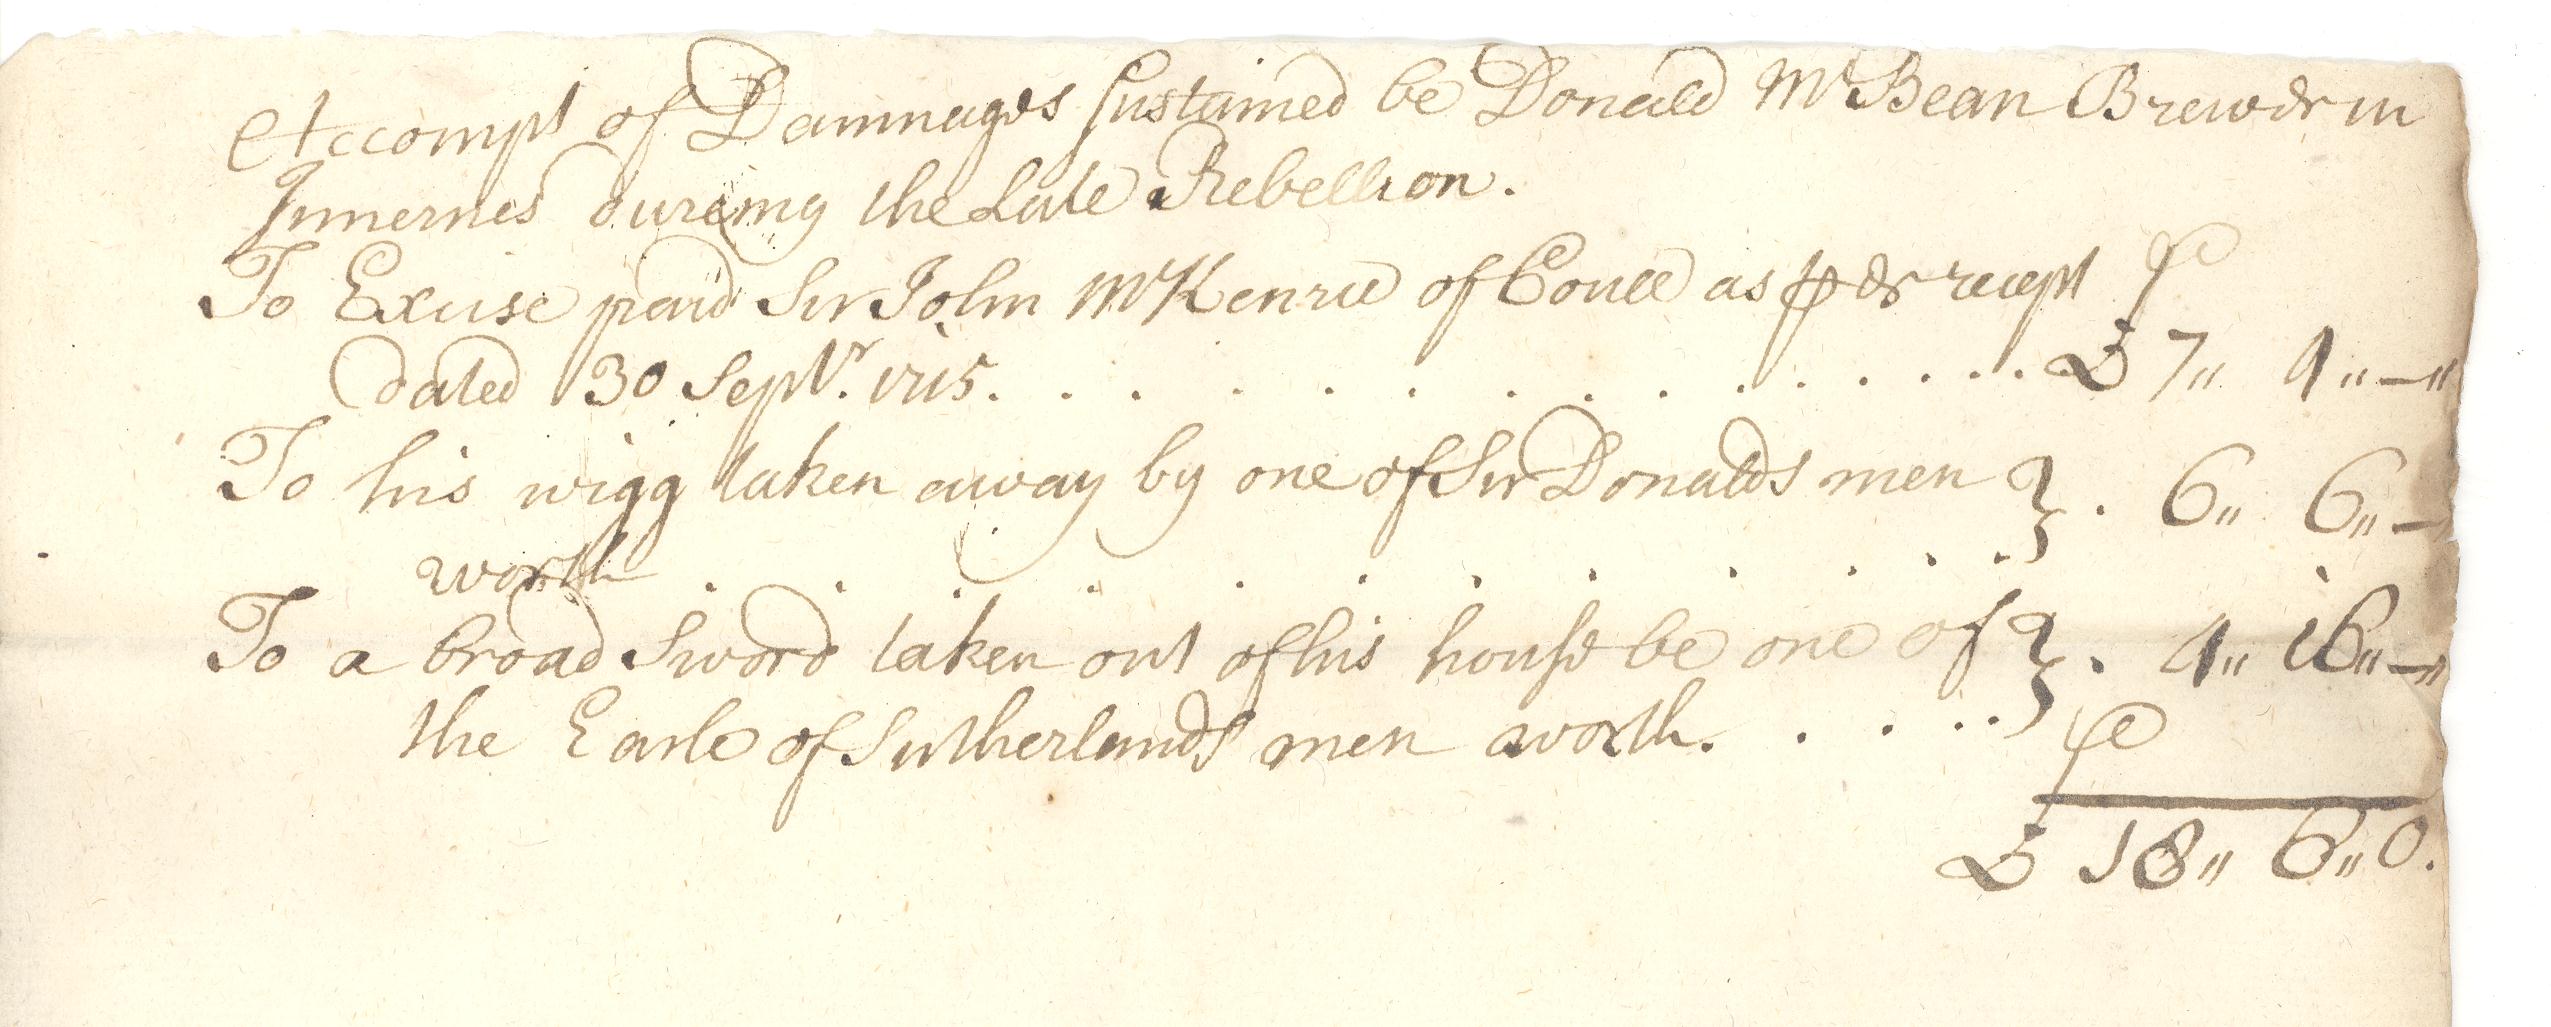 Accompt of Damnages sustained be Donald McBean Brewer in
Innernes dureing the Late Rebellion.
To Excise paid Sir John McKenzie of Coull as per recept
dated 30 Septr. 1715. . . . . . . . . . . . . . . £ 7" 4" —"
To his wigg taken away by one of Sir Donalds men } . 6" 6" —
worth . . . . . . . . . . . .
To a broad Sword taken out of his house be one of } . 4" 16" —"
the Earle of Sutherlands men worth. . . . .
£ 18" 6" 0.